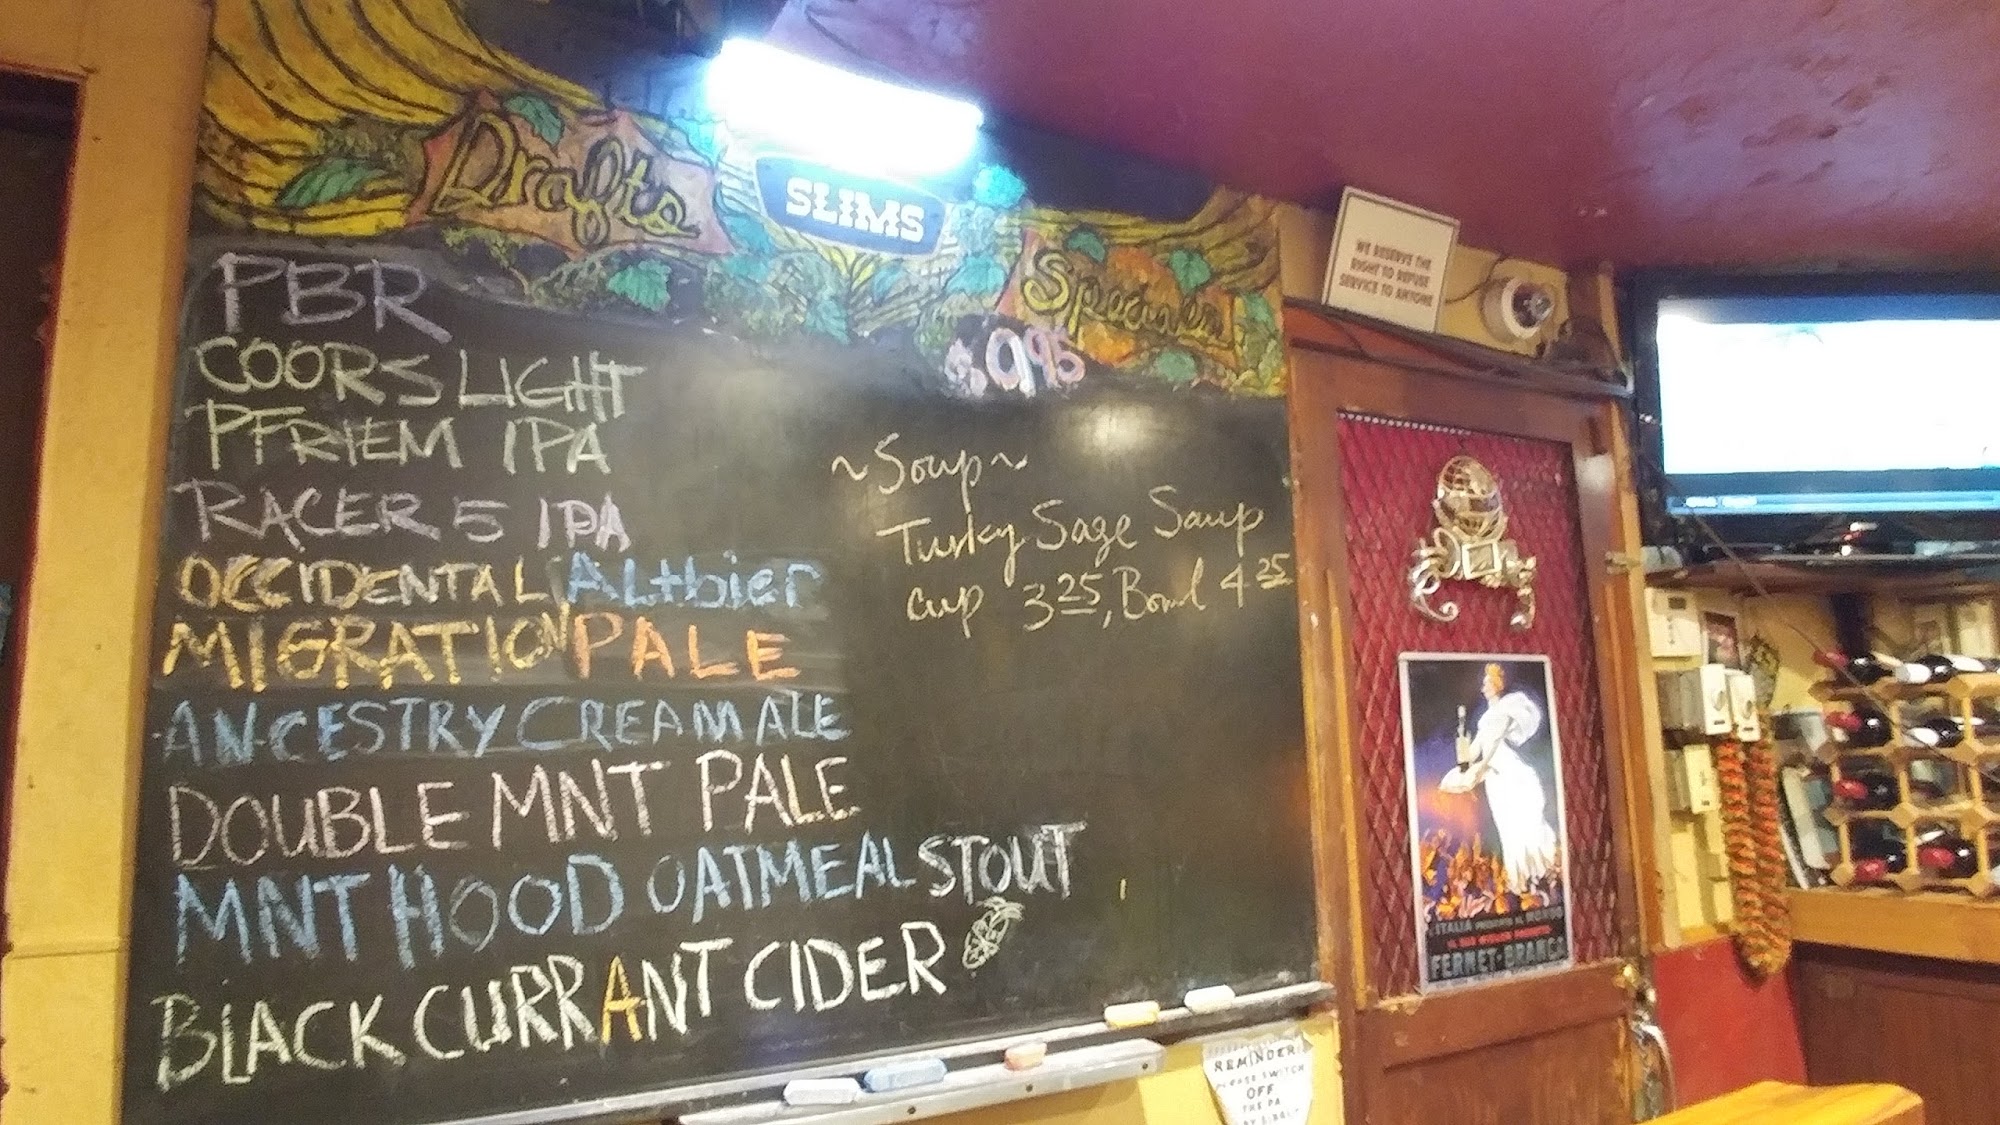 Drafts
SLIMS
Specials
PBR
COORS LIGHT
PFRIEM IPA
RACER 5 IPA
OCCIDENTAL Altbier
MIGRATION PALE
ANCESTRY CREAM ALE
DOUBLE MNT PALE
MNT HOOD OATMEAL STOUT
BLACK CURRANT CIDER
~Soup~
Turky Sage Soup
cup 3 25, Bowl 4 25
WE RESERVE THE
RIGHT TO REFUSE
SERVICE TO ANYONE
ITALIA
FERNET-BRANCA
REMINDER
PLEASE SWITCH
OFF
THE PA